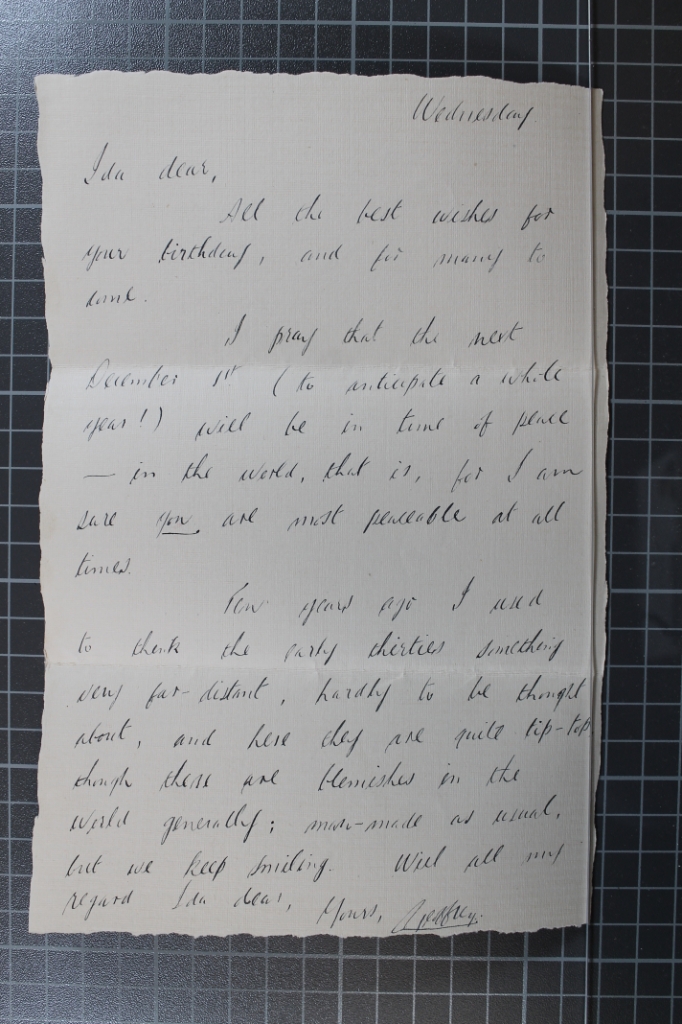 Wednesday
Ida dear,
All the best wishes for
your birthday, and for many to
come.
I pray that the next
December 1st (to anticipate a whole
year!) will be in time of peace
— in the world, that is, for I am
sure you are most peaceable at all
times.
Ten years ago I used
to think the early thirties something
very far-distant, hardly to be thought
about, and here they are quite tip-top
though there are blemishes in the
world generally; man-made as usual,
but we keep smiling. With all my
regard Ida dear, Yours, Geoffrey.